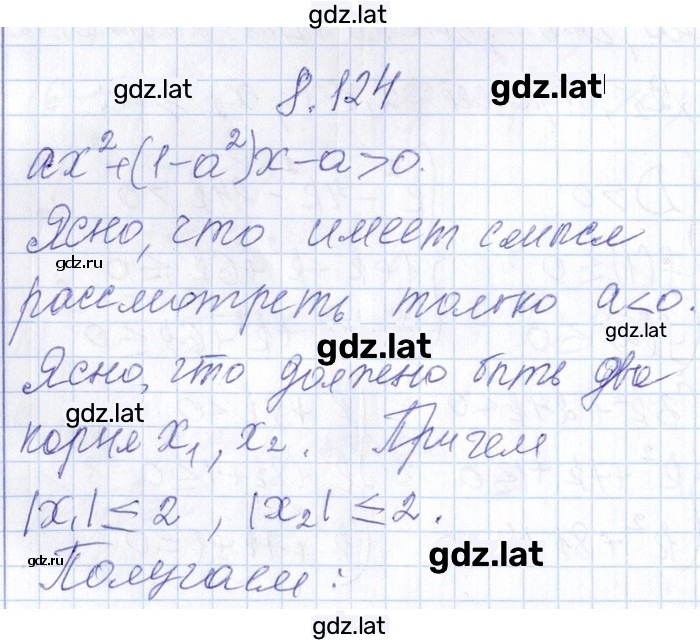 gdz.lat
gdz.lat 8.124 gdz.lat
ax²+(1-a²)x-a>0.
Ясно, что имеет смысл
gdz.ru
рассмотреть только a<0.
gdz.lat
gdz.lat
Ясно, что должно быть два
gdz.lat
корня x₁, x₂. Причем
|x₁|≤2, |x₂|≤2.
gdz.ru
gdz.lat
Получаем:
gdz.lat